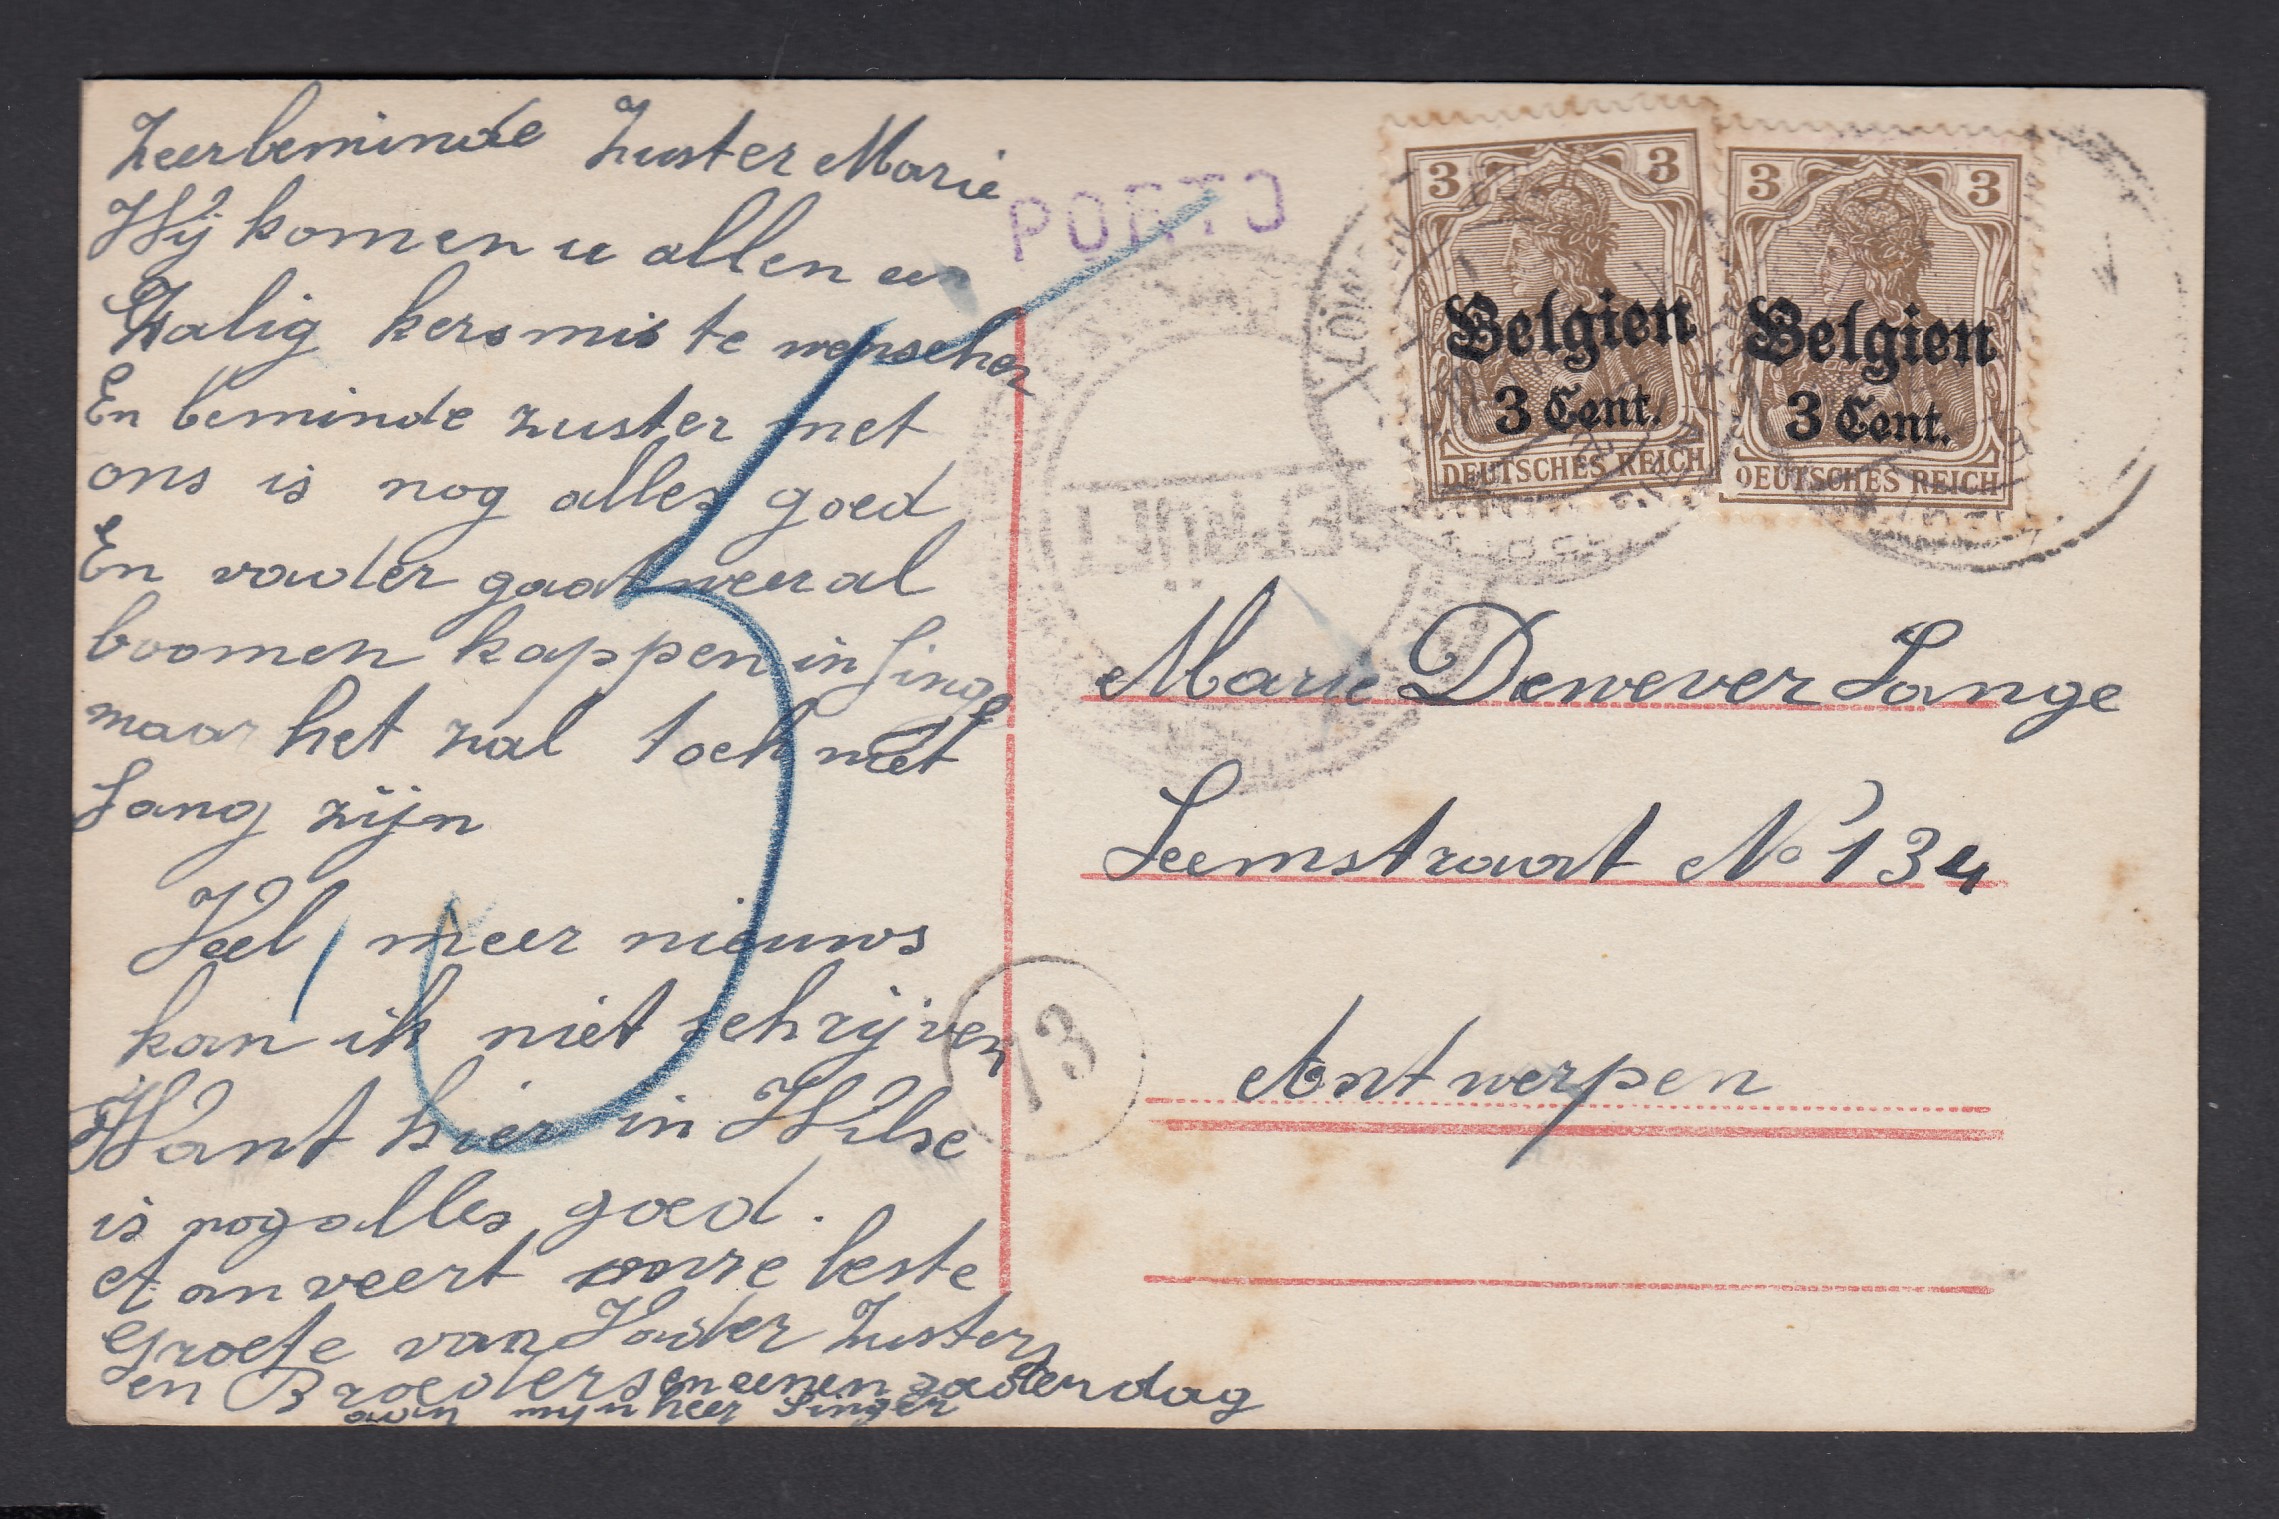 Zeerbeminde Zuster Marie
Wij komen u allen een
Zalig kersmis te wenschen
En beminde zuster met
ons is nog alles goed
En vader gaat weer al
boomen kappen in
maar het zal toch niet
Lang zijn
Veel meer nieuws
kan ik niet schrijven
Want hier in Wilse
is nog alles goed.
Anveert onze beste
Groete van Vader Zusters
en Broeders en eenen zaderdag
mijnheer Singer
PORTO
3 3
Belgien
3 Cent.
DEUTSCHES REICH
3 3
Belgien
3 Cent.
DEUTSCHES REICH
GEPRÜFT
5
Marie Dewever Lange
Leemstraat No 134
Antwerpen
13